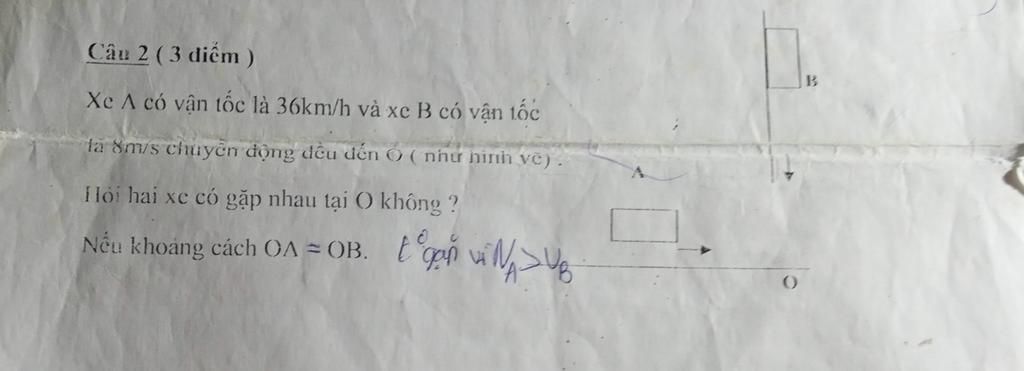 Câu 2 ( 3 điểm )
Xe A có vận tốc là 36km/h và xe B có vận tốc
là 8m/s chuyển động đều đến O ( như hình vẽ) .
Hỏi hai xe có gặp nhau tại O không ?
Nếu khoảng cách OA = OB.
vì V_A > V_B
B
A
O